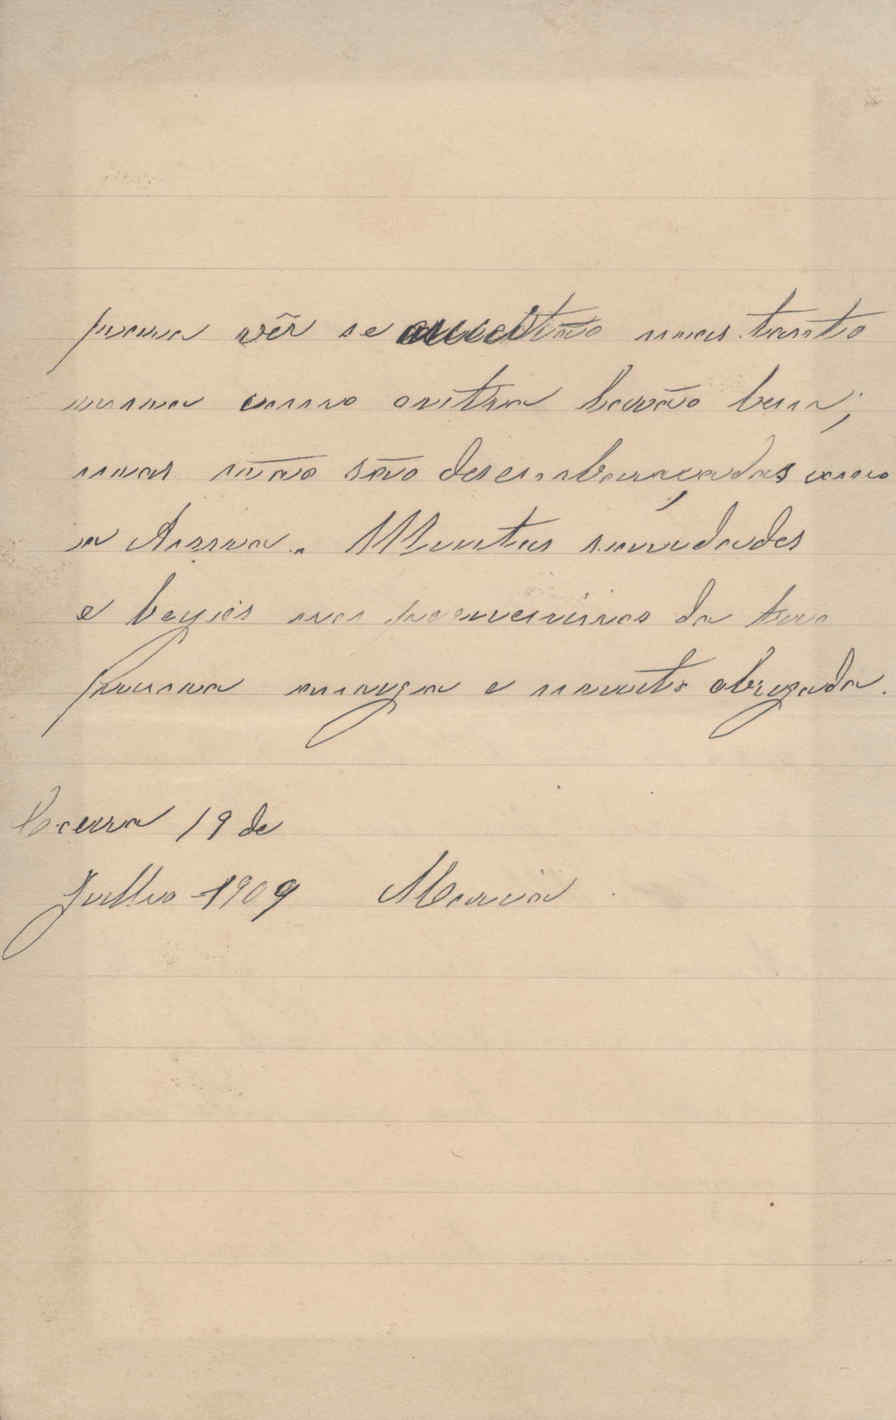 para vêr se acceitão mas tanto
uma como outra lavão bem;
mas não são desembaraçadas como
a Anna. Muitas saudades
e beijos nos pequeninos da tua
prima amiga e muito obrigada.
19 de
Julho 1909 Maria